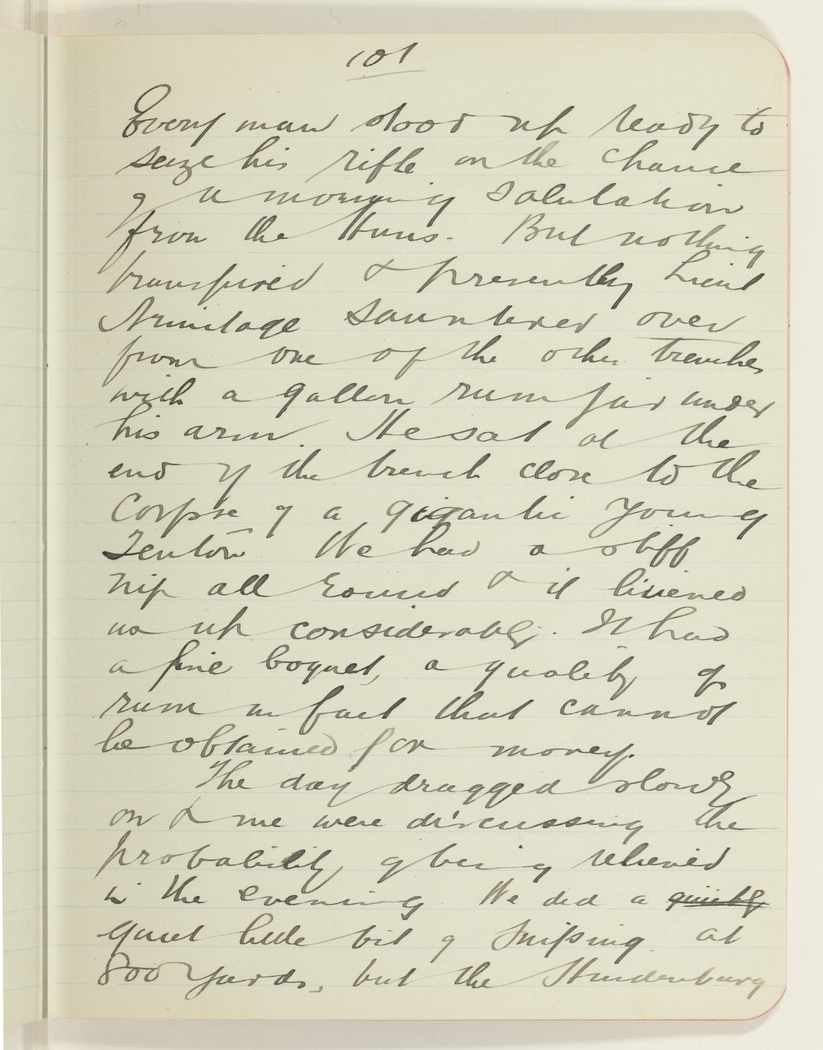 101
Every man stood up ready to
seize his rifle on the chance
of a morning salutation
from the Huns. But nothing
transpired & presently Lieut
Armitage sauntered over
from one of the other trenches
with a gallon rum jar under
his arm. He sat at the
end of the trench close to the
Corpse of a gigantic young
Teuton. We had a stiff
nip all round & it livened
us up considerably. It had
a fine boquet, a quality of
rum in fact that cannot
be obtained for money.
The day dragged slowly
on & we were discussing the
probability of being relieved
in the evening. We did a quietly
quiet little bit of sniping at
800 yards, but the Hindenburg